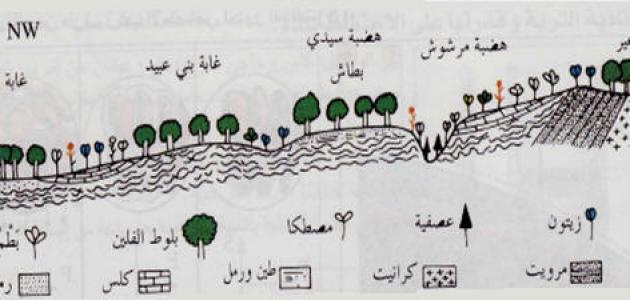 NW
هضبة سيدي
بطاش
هضبة مرشوش
غابة بني عبيد
غابة
زيتون
عصفية
مصطكا
بلوط الفلين
مرويت
كرانيت
طين ورمل
كلس